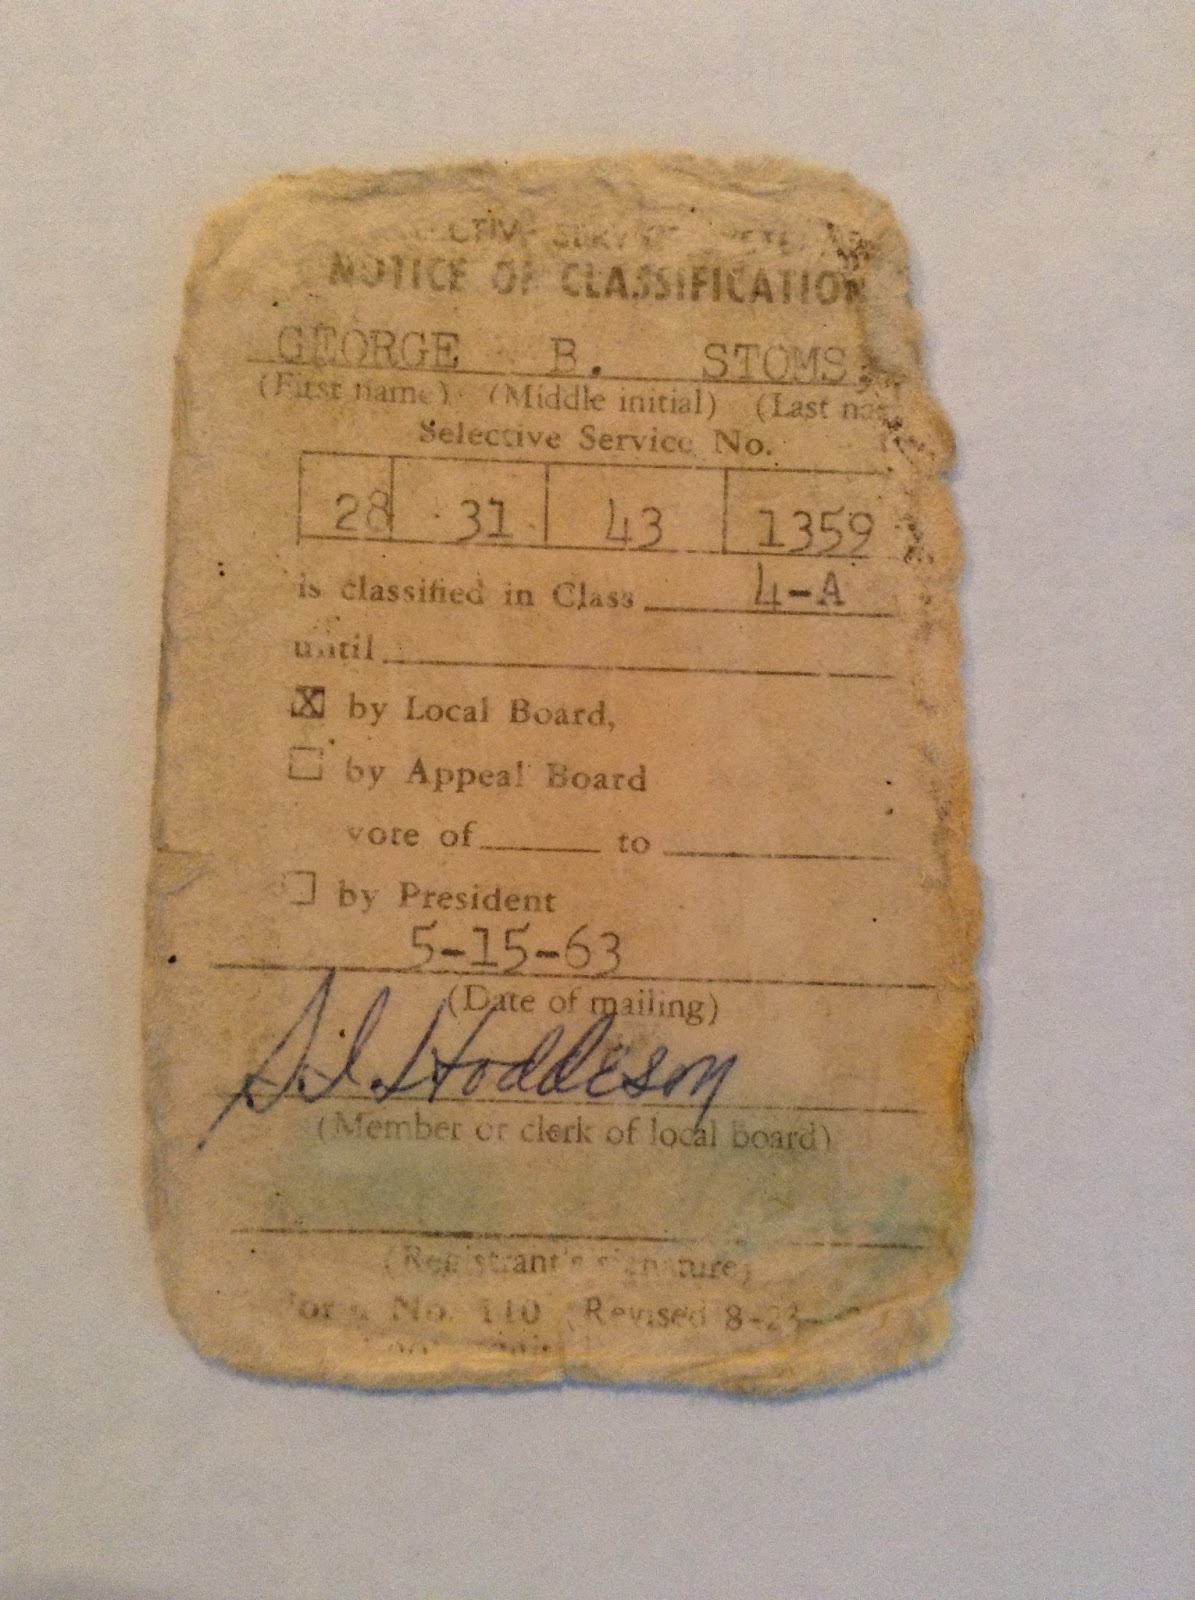 NOTICE OF CLASSIFICATION
GEORGE B. STOMS
(First name) (Middle initial) (Last
Selective Service No.
28 31 43 1359
is classified in Class 4-A
until
X by Local Board,
by Appeal Board
vote of to
by President
5-15-63
(Date of mailing)
Hoddeson
(Member or clerk of local board)
(Registrant's signature)
No. 110 (Revised 8-23-